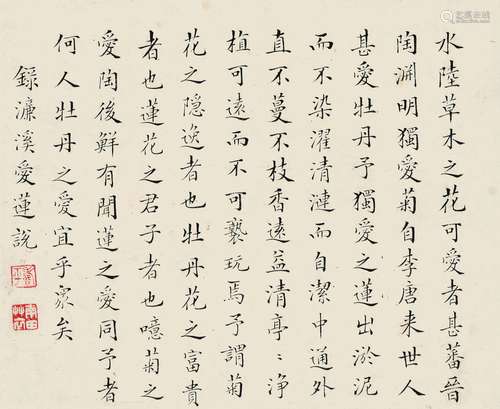 水陸草木之花可愛者甚蕃晉
陶淵明獨愛菊自李唐来世人
甚愛牡丹予獨愛之蓮出淤泥
而不染濯清漣而自潔中通外
直不蔓不枝香遠益清亭〻淨
植可遠而不可褻玩焉予謂菊
花之隱逸者也牡丹花之富貴
者也蓮花之君子者也噫菊之
愛陶後鮮有聞蓮之愛同予者
何人牡丹之愛宜乎衆矣
錄濂溪愛蓮說